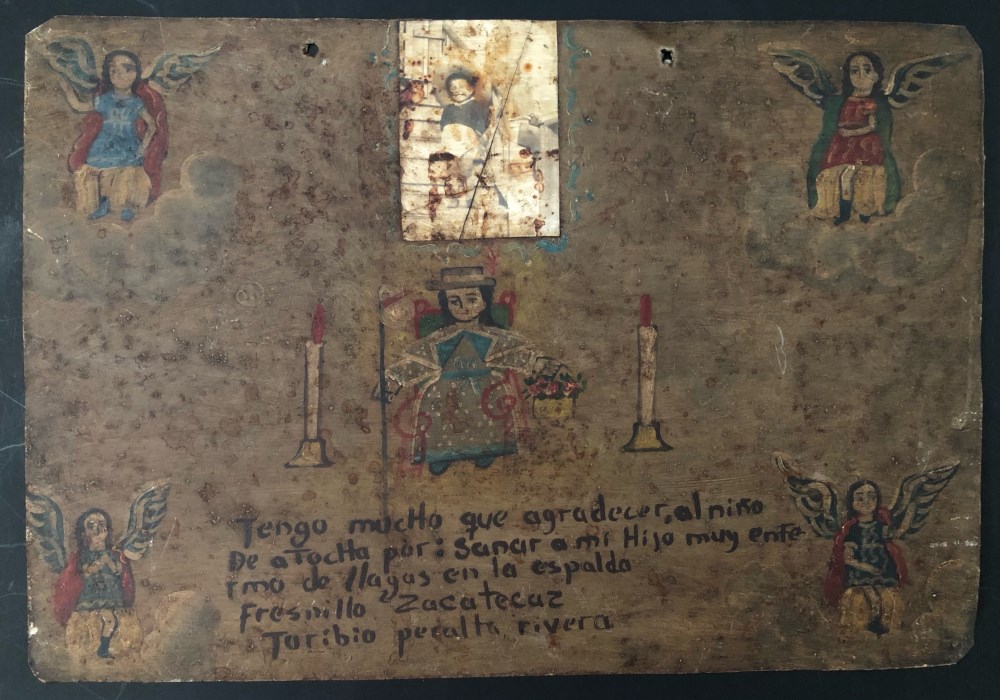 Tengo mucHo que agradecer, al niño
De atocHa por: Sanar a mi Hijo muy enfe
rmo de llagas en la espalda
Fresnillo Zacatecaz
Toribio peralta rivera